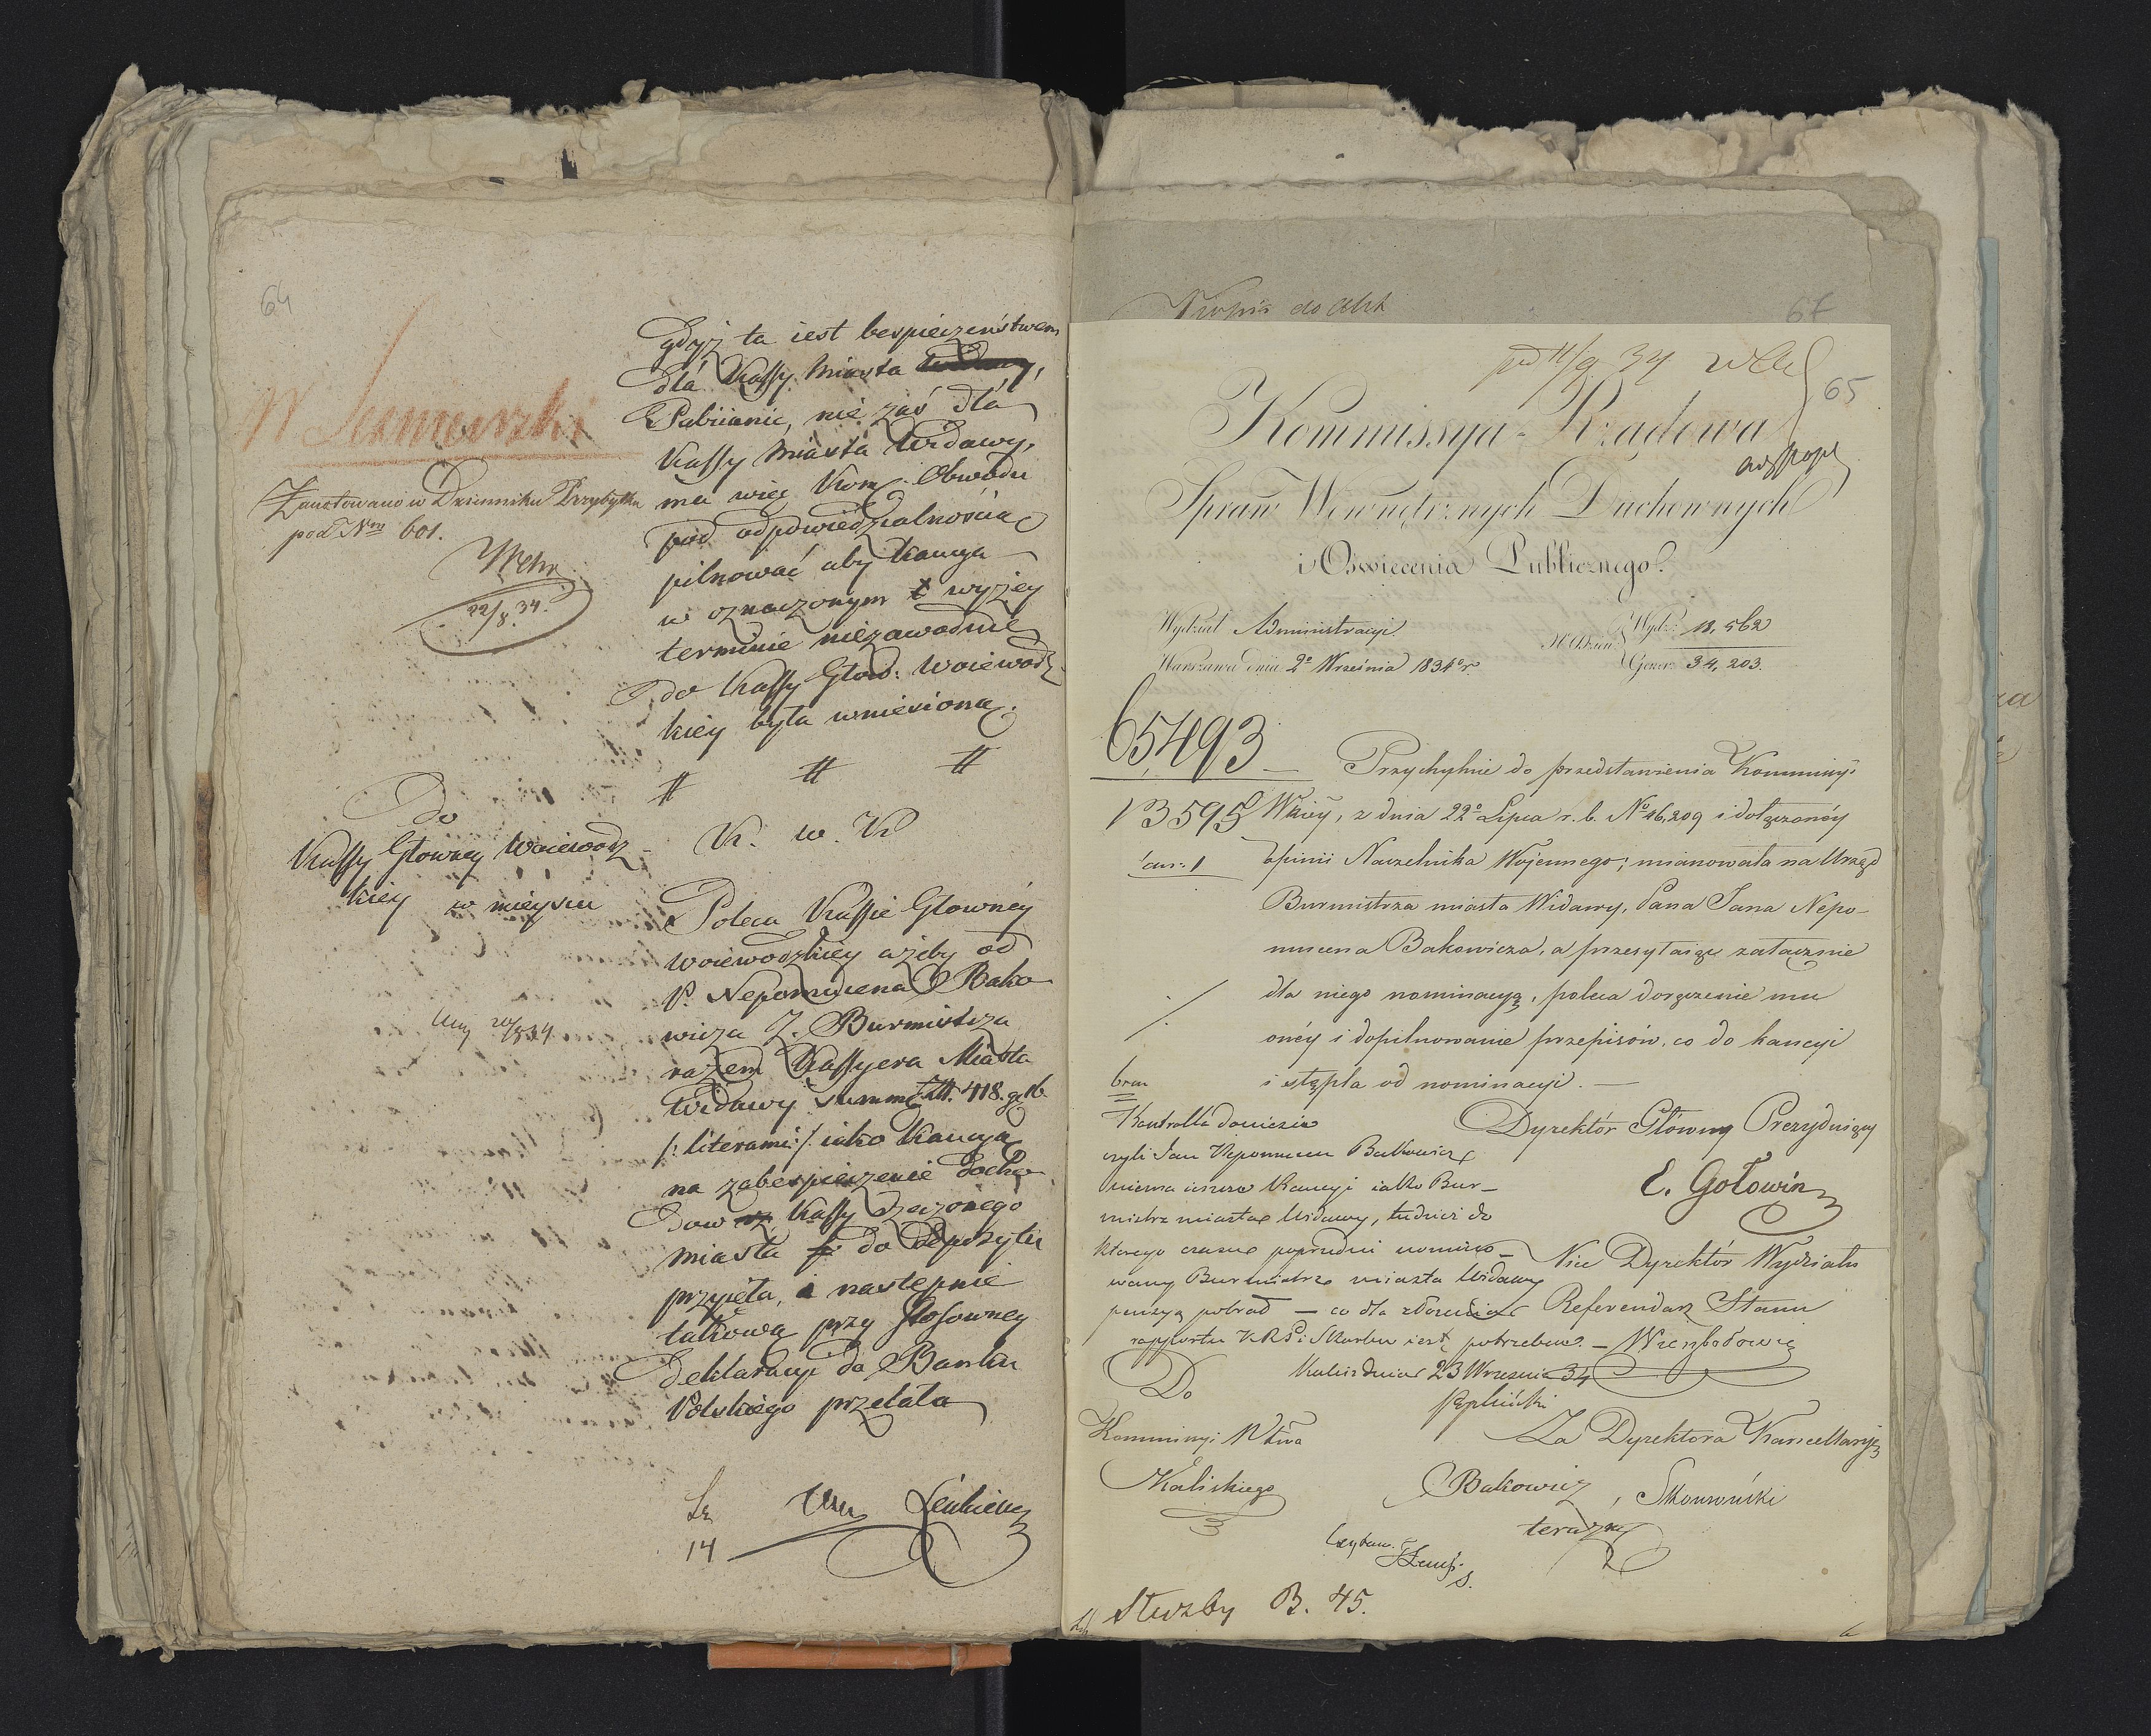 64
gdyż ta iest bespieczeństwem
dla Kassy Miasta
Pabiianic, nie zaś dla
Kassy Miasta Widawy,
ma więc Kom: Obwodu
pod odpowiedzialnością
pilnować aby Kaucya
w oznaczonym wyżey
terminie niezawodnie
do Kassy Głow: Woiewodz
kiey była wniesiona.
Zanotowano w Dzienniku Przybytku
pod Nm 601.
22/8 34.
Do
Kassy Głowney Woiewodz-
kiey w mieyscu
K. w. K
Poleca Kassie Głowney
Woiewodzkiey ażeby od
P. Nepomucena Bako
wicza Z. Burmistrza
razem Kassyera Miasta
Widawy Summę Zł. 418. g. 16.
/: literami :/ iako Kaucyą
na zabespieczenie docho
dow Kassy rzeczonego
miasta do depozytu
przyięła, i następnie
takową przy stosowney
Deklaracyi do Banku
Polskiego przelała
14
65
Kommissya Rządowa
Spraw Wewnętrznych Duchownych
i Oświecenia Publicznego.
Wydział Administracyi
Warszawa dnia 2º Września 1834º r.
Wydz: 18,562
Gener: 34,203.
65,493
13595
Przychylnie do przedstawienia Kommissyi
Wkiey, z dnia 22º Lipca r. b. Nº 46,209 i dołączonéy
opinii Naczelnika Wojennego; mianowała na Urząd
Burmistrza miasta Widawy, Pana Jana Nepo-
mucena Bakowicza, a przesyłaiąc załącznie
dla niego nominacyą, poleca doręczenie mu
onéy i dopilnowanie przepisów, co do kaucyi
i stępla od nominacyi. —
Dyrektór Główny Prezyduiący
E. Gołowin
Kontrolla doniesie
czyli Jan Nepomucen Bakowicz
wniósł Kaucyi iako Bur-
mistrz miasta Widawy, tudzież do
którego czasu poprzedni nomino-
wany Burmistrz miasta Widawy
pensyą pobrał — co dla złożenia
rapportu K R P i Skarbu iest potrzebne. —
Kalisz dnia 23 Września 34
Vice Dyrektór Wydziału
Referendarz Stanu
Do
Kommissyi Wtwa
Kaliskiego
Za Dyrektora Kancellaryi
Bakowicz
Służby B. 45.